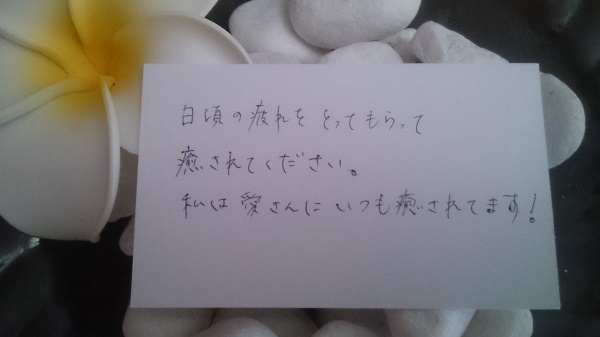 日頃の疲れをとってもらって
癒されてください。
私は愛さんにいつも癒されてます!